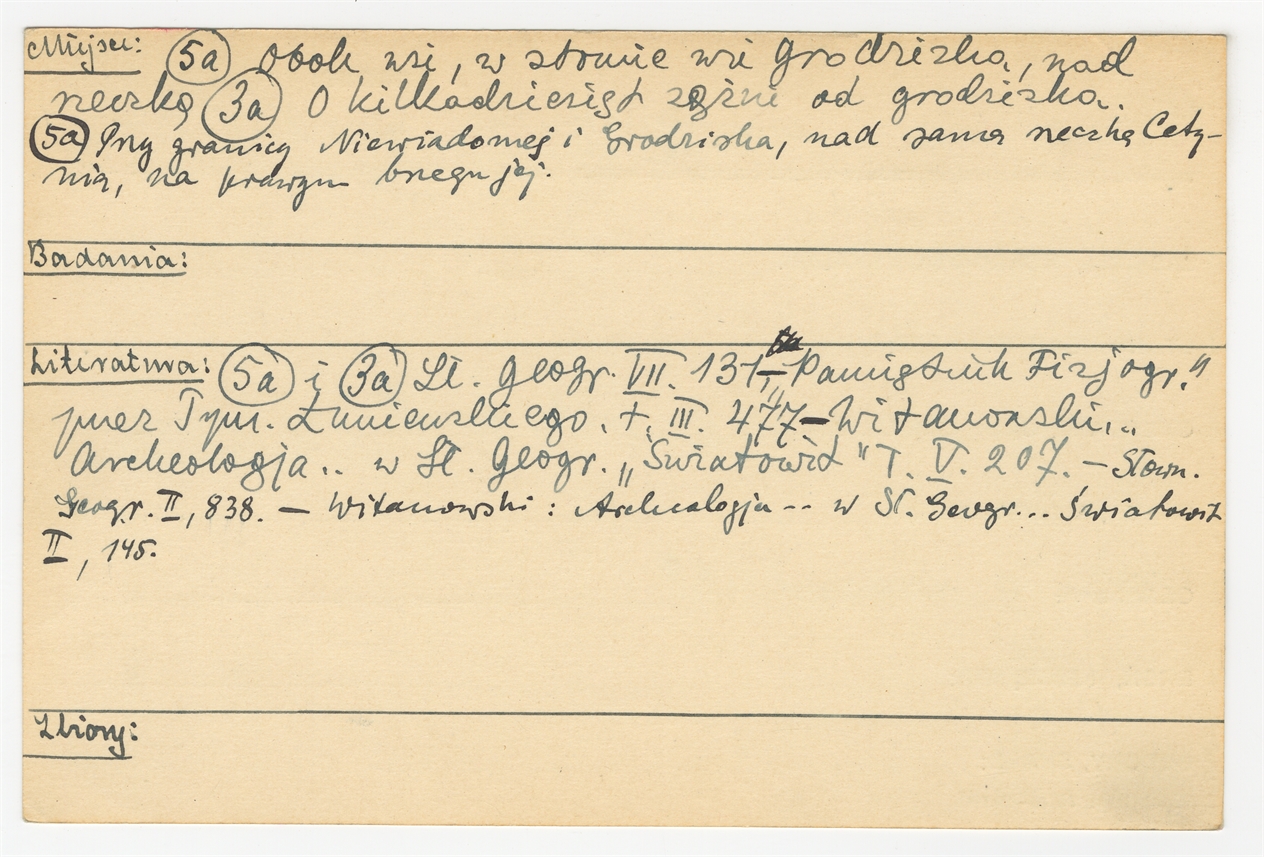 Miejsce: (5a) Obok wsi, w stronie wsi Grodziska, nad
rzeczką (3a) O kilkadziesiąt sążni od grodziska.
(5a) Przy granicy Niewiadomej i Grodziska, nad samą rzeczką Cety-
nią, na prawym brzegu jej.
Badania:
Literatura: (5a) i (3a) Sł. Geogr. VII. 131,– „Pamiętnik Fizjogr."
przez Tym. Łuniewskiego. t. III. 477 – Witanowski..
Archeologja.. w Sł. Geogr. „Światowit" T. V. 207. – Słown.
Geogr. II, 838. – Witanowski: Archeologja -- w Sł. Geogr... Światowit
II, 145.
Zbiory: